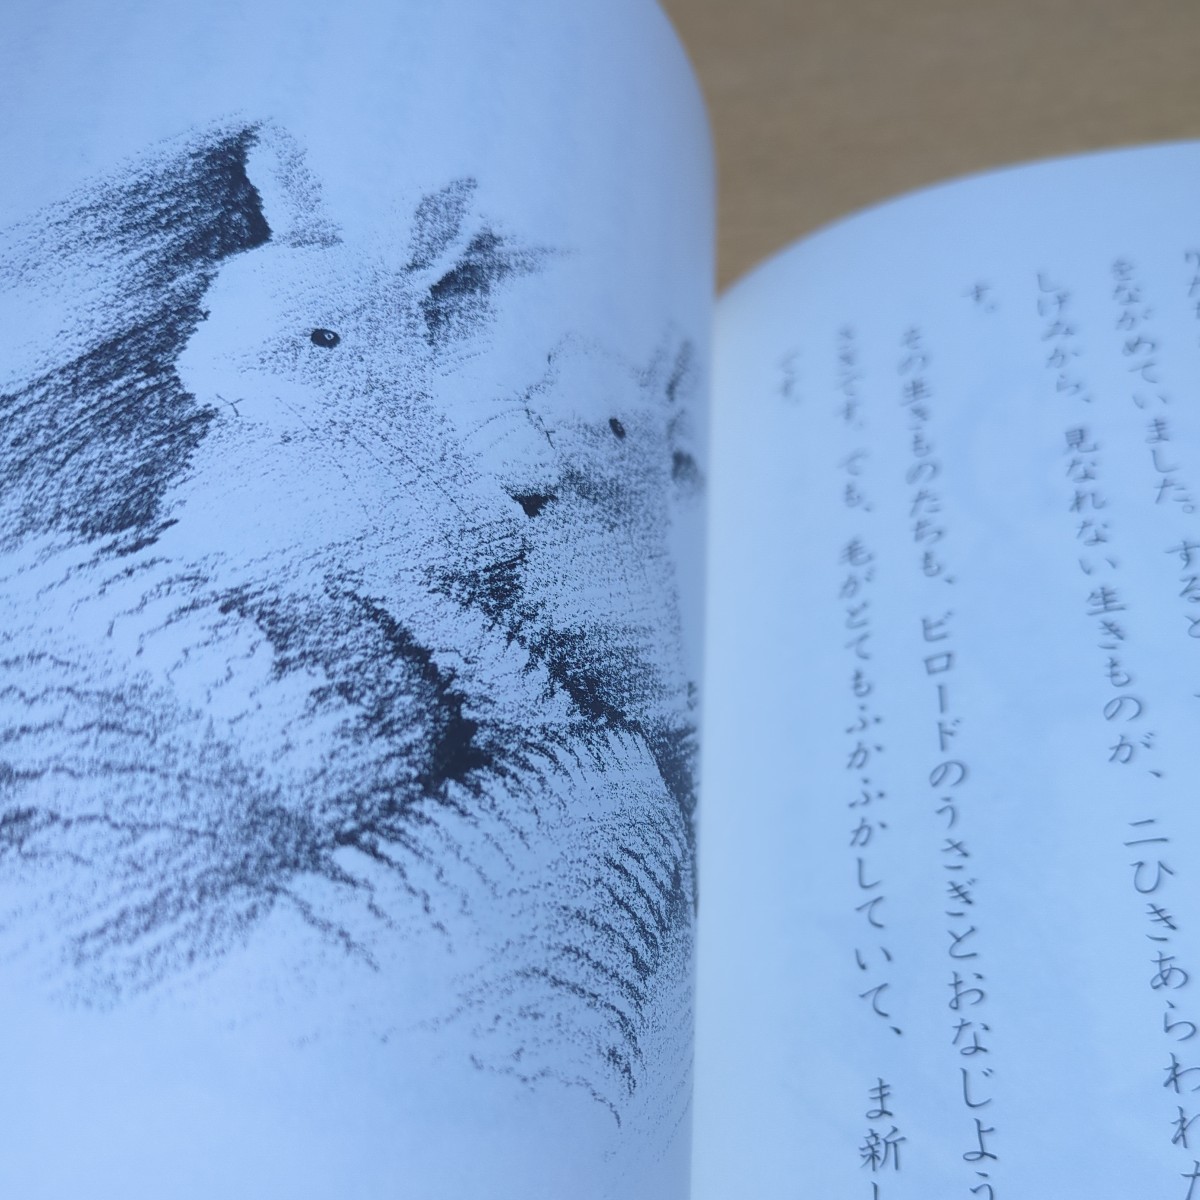 をながめていました。すると
しげみから、見なれない生きものが、二ひきあらわれた
す。
その生きものたちも、ビロードのうさぎとおなじよう
さぎです。でも、毛がとてもふかふかしていて、ま新し
です